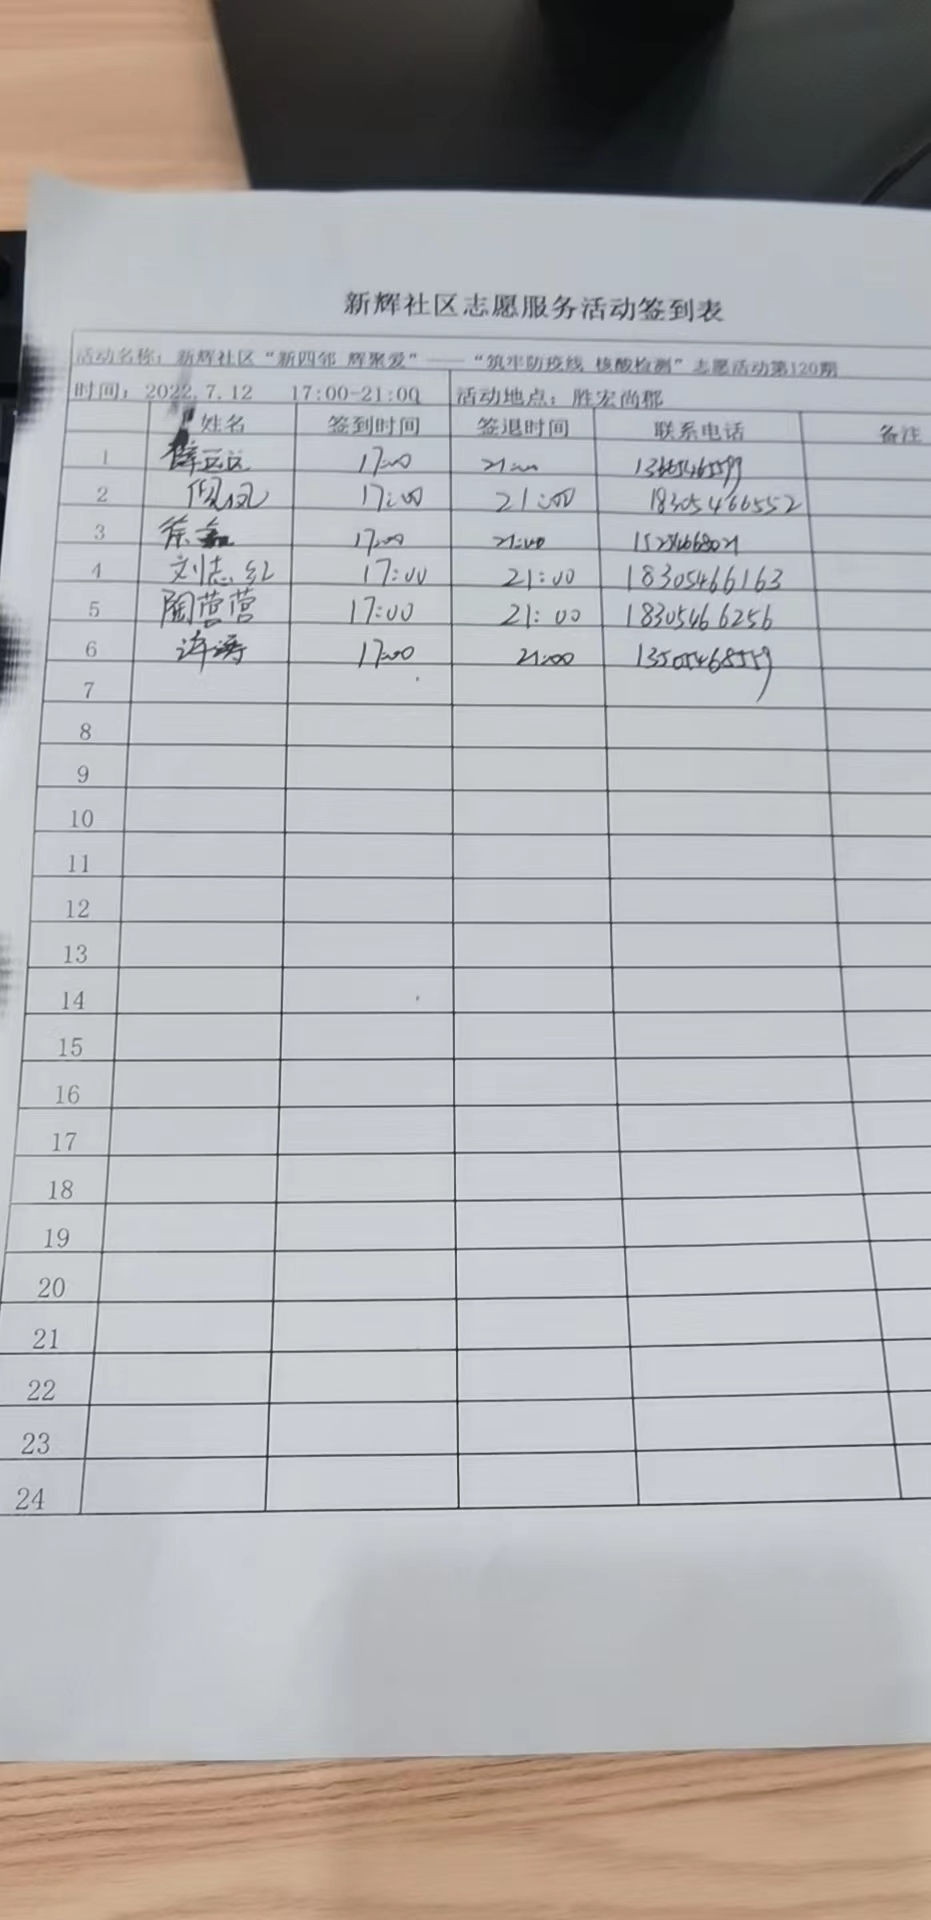 新辉社区志愿服务活动签到表
活动名称：新辉社区“新四邻 辉聚爱”——“筑牢防疫线 核酸检测”志愿活动第120期
时间：2022.7.12 17:00-21:00 活动地点：胜宏尚郡
姓名 签到时间 签退时间 联系电话 备注
1 17:00 21:00
2 17:00 21:00 18305466552
3 徐鑫 17:00 21:00
4 刘志红 17:00 21:00 18305466163
5 陶营营 17:00 21:00 18305466256
6 许涛 17:00 21:00 13505468559
7
8
9
10
11
12
13
14
15
16
17
18
19
20
21
22
23
24